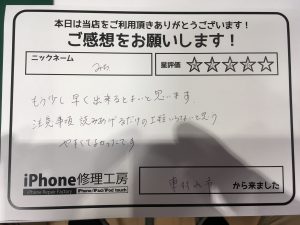 本日は当店をご利用頂きありがとうございます!
ご感想をお願いします!
ニックネーム
みち
星評価
☆☆☆☆☆
もう少し早く出来るとよいと思います
注意事項 読みあげるだけの工程いらないと思う
やすくてよかったです
iPhone修理工房
iPhone Repair Factory
iPhone/iPad/iPod touch
東村山市
から来ました